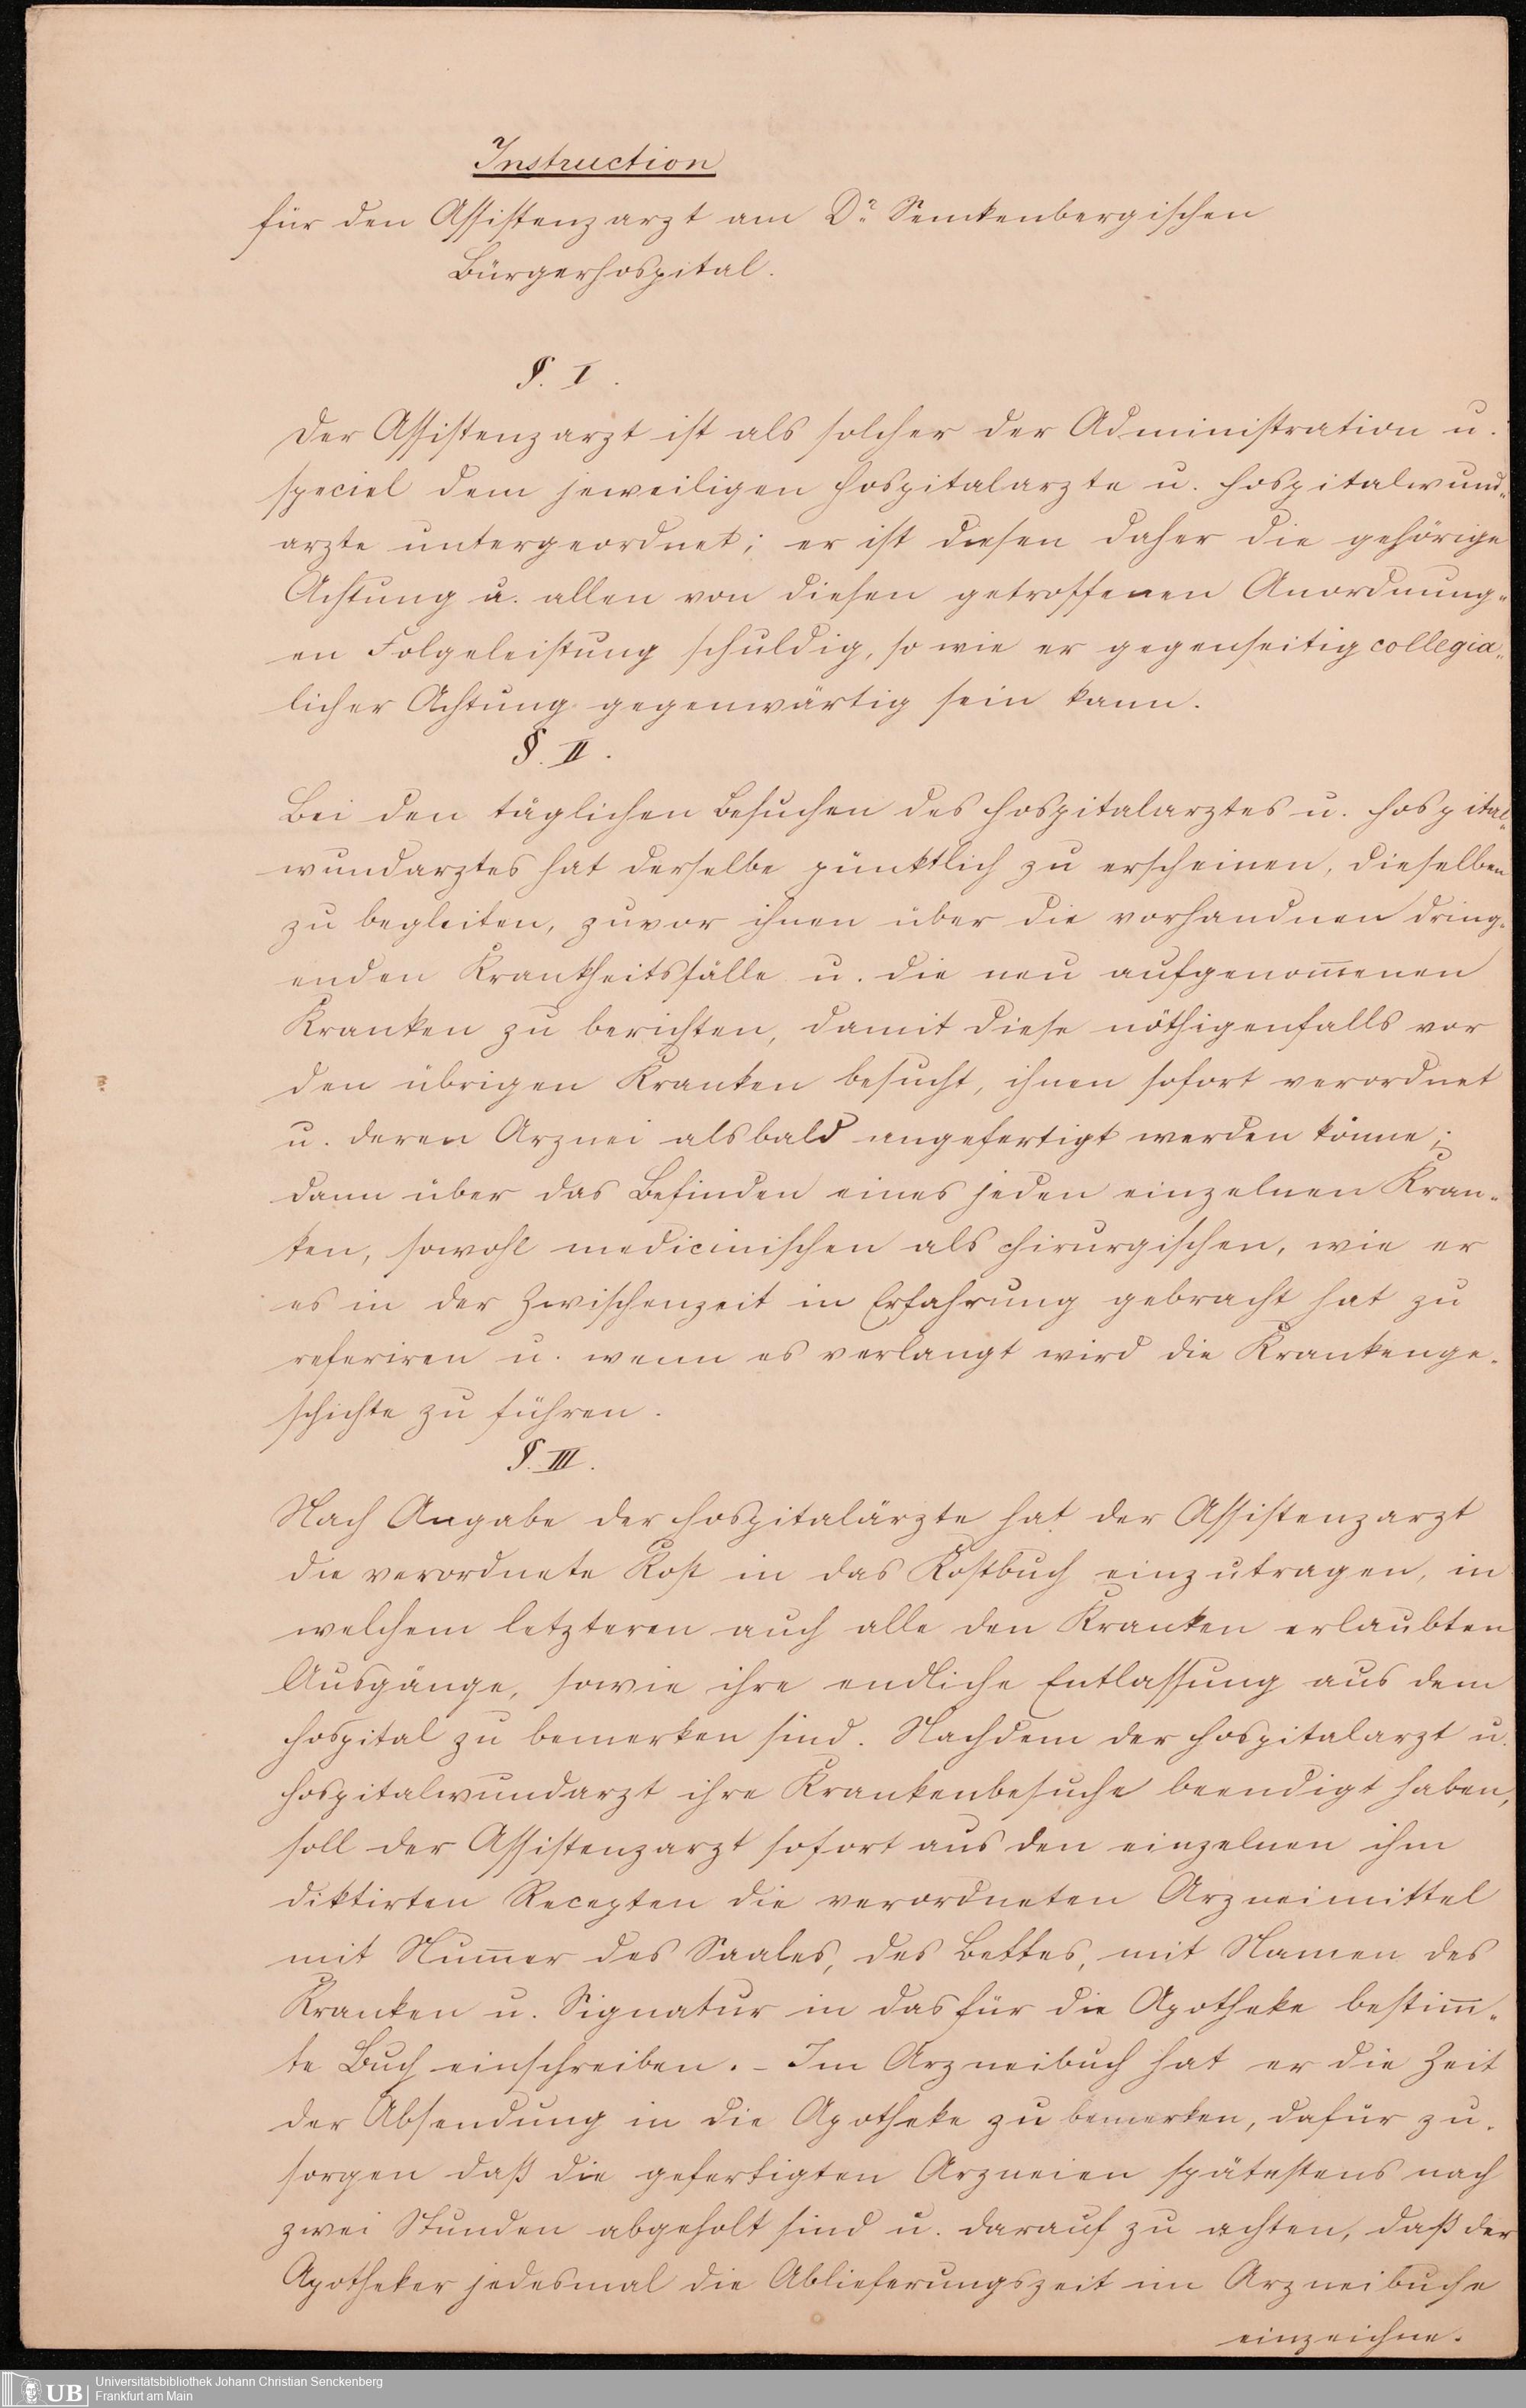 Instruction
für den Assistenzarzt am Dr. Senckenbergischen
Bürgerhospital.
§. I.
Der Assistenzarzt ist als solcher der Administration u.
speciel dem jeweiligen Hospitalarzte u. Hospitalwund-
arzte untergeordnet; er ist diesen daher die gehörige
Achtung u. allen von diesen getroffenen Anordnung-
en Folgeleistung schuldig, so wie er gegenseitig collegia-
licher Achtung gegenwärtig sein kann.
§. II.
Bei den täglichen Besuchen des Hospitalarztes u. Hospital-
wundarztes hat derselbe pünktlich zu erscheinen, dieselben
zu begleiten, zuvor ihnen über die vorhandnen dring-
enden Krankheitsfälle u. die neu aufgenom̅enen
Kranken zu berichten, damit diese nöthigenfalls vor
den übrigen Kranken besucht, ihnen sofort verordnet
u. deren Arznei alsbald angefertigt werden könne;
dann über das Befinden eines jeden einzelnen Kran-
ken, sowohl medicinischen als chirurgischen, wie er
es in der Zwischenzeit in Erfahrung gebracht hat zu
referiren u. wenn es verlangt wird die Krankenge-
schichte zu führen.
§. III.
Nach Angabe der Hospitalärzte hat der Assistenzarzt
die verordnete Kost in das Kostbuch einzutragen, in
welchem letzteren auch alle den Kranken erlaubten
Ausgänge, sowie ihre endliche Entlassung aus dem
Hospital zu bemerken sind. Nachdem der Hospitalarzt u.
Hospitalwundarzt ihre Krankenbesuche beendigt haben,
soll der Assistenzarzt sofort aus den einzelnen ihm
diktirten Recepten die verordneten Arzneimittel
mit Num̅er des Saales, des Bettes, mit Namen des
Kranken u. Signatur in das für die Apotheke bestim̅-
te Buch einschreiben. – Im Arzneibuch hat er die Zeit
der Absendung in die Apotheke zu bemerken, dafür zu
sorgen daß die gefertigten Arzneien spätestens nach
zwei Stunden abgeholt sind u. darauf zu achten, daß der
Apotheker jedesmal die Ablieferungszeit im Arzneibuche
einzeichne.
UB Universitätsbibliothek Johann Christian Senckenberg
Frankfurt am Main